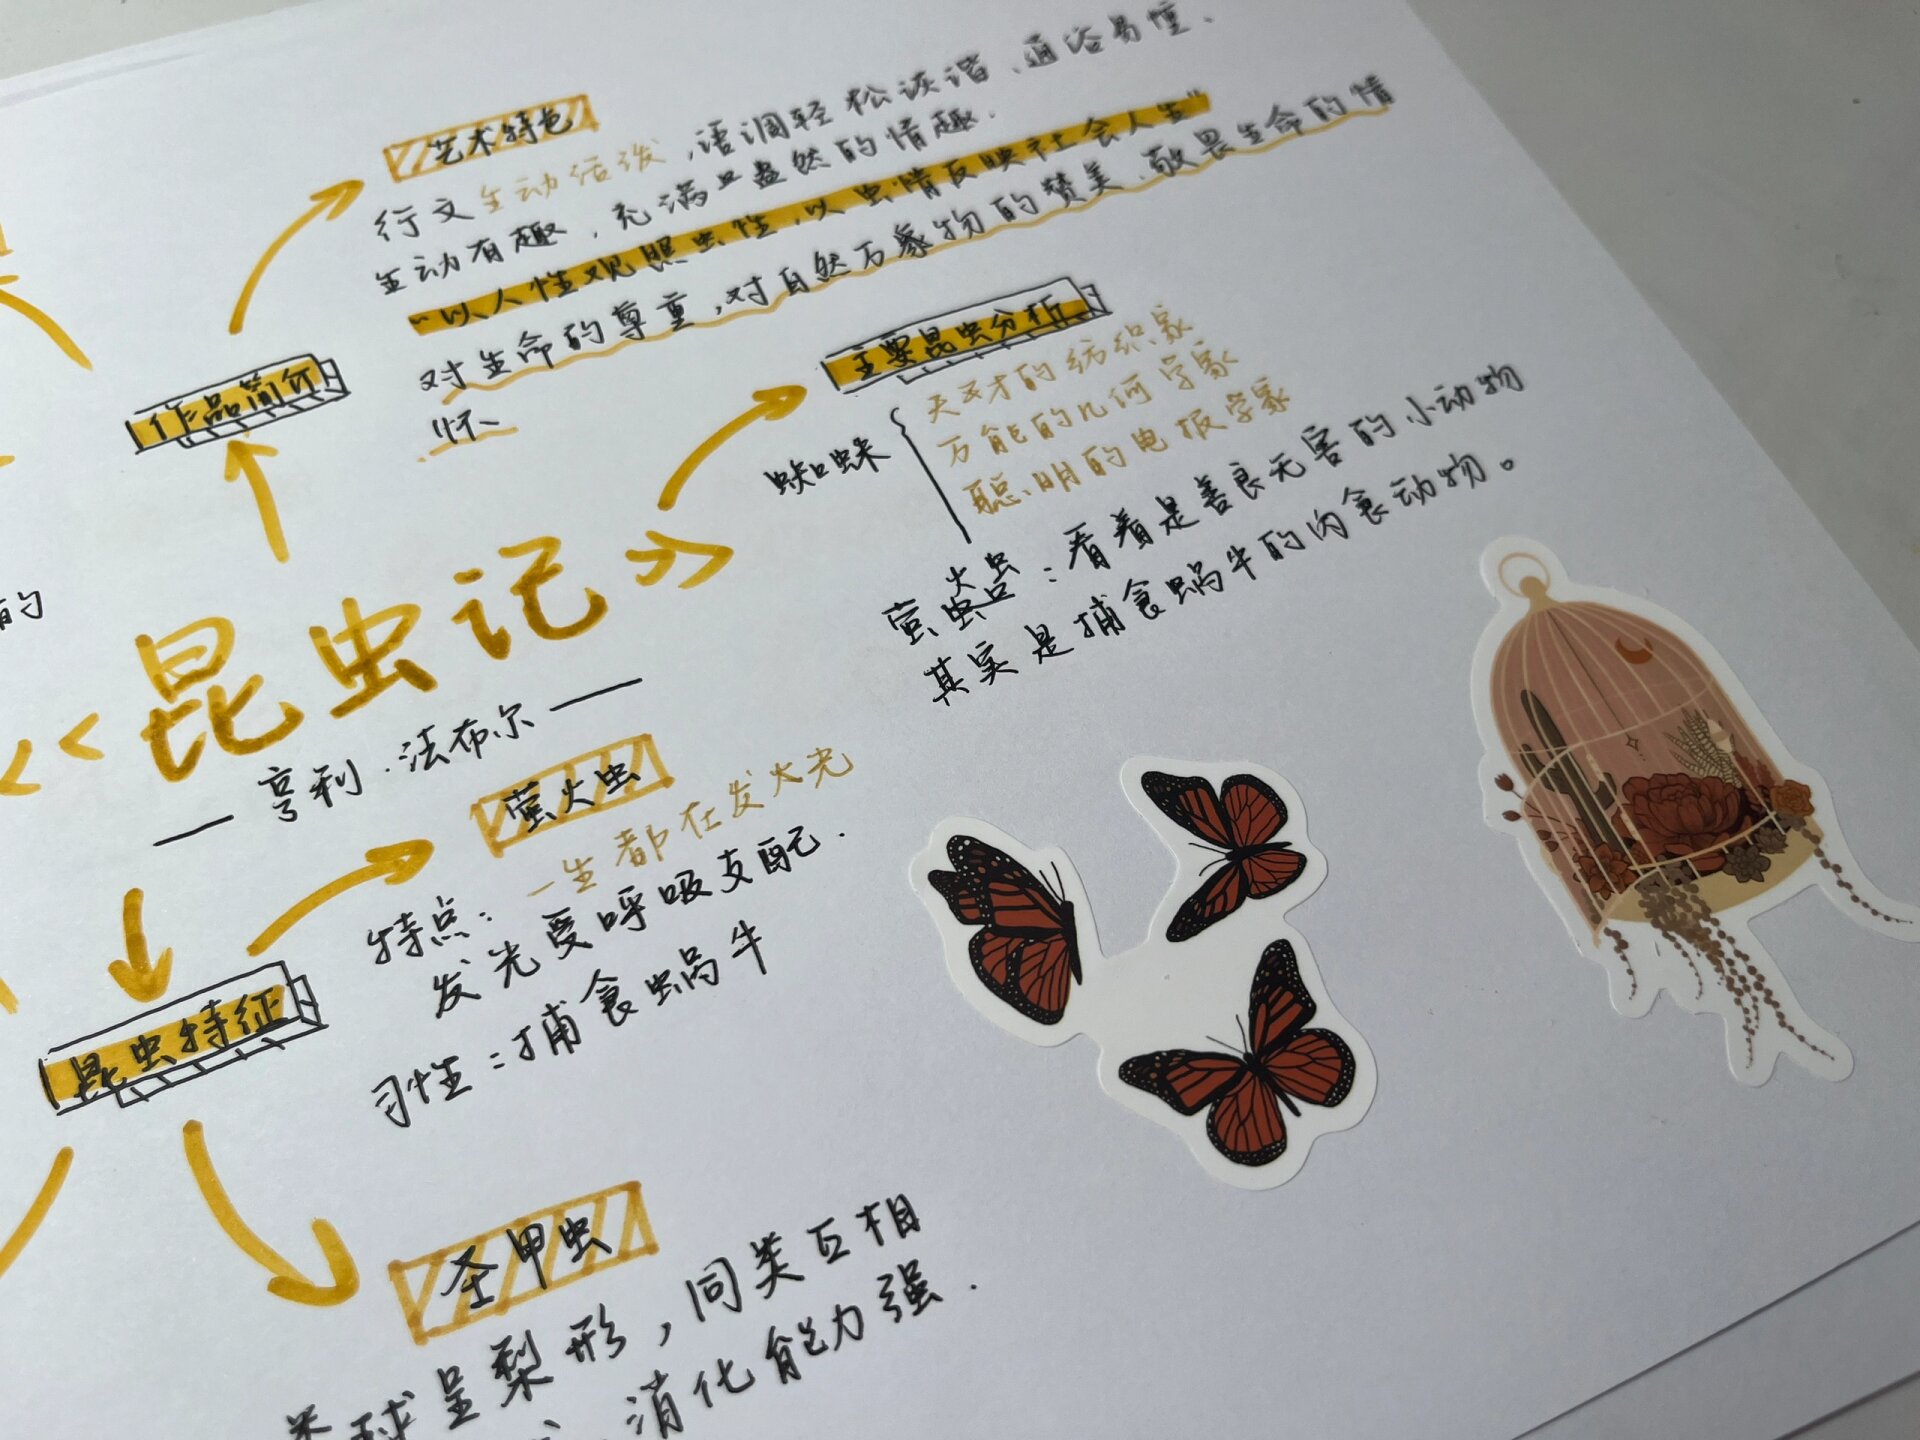 艺术特色
行文生动活泼，语调轻松诙谐、通俗易懂、
生动有趣，充满盎然的情趣.
“以人性观照虫性，以虫情反映社会人生”
对生命的尊重，对自然万象物的赞美、敬畏生命的情
怀
作品简介
主要昆虫分析
蜘蛛
天才的纺织家
万能的几何学家
聪明的电报学家
萤火虫：看着是善良无害的小动物
其实是捕食蜗牛的肉食动物。
的
《昆虫记》
—— 亨利.法布尔 ——
昆虫特征
萤火虫
特点：一生都在发火光
发光受呼吸支配.
习性：捕食蜗牛
圣甲虫
球呈梨形，同类互相
消化能力强.